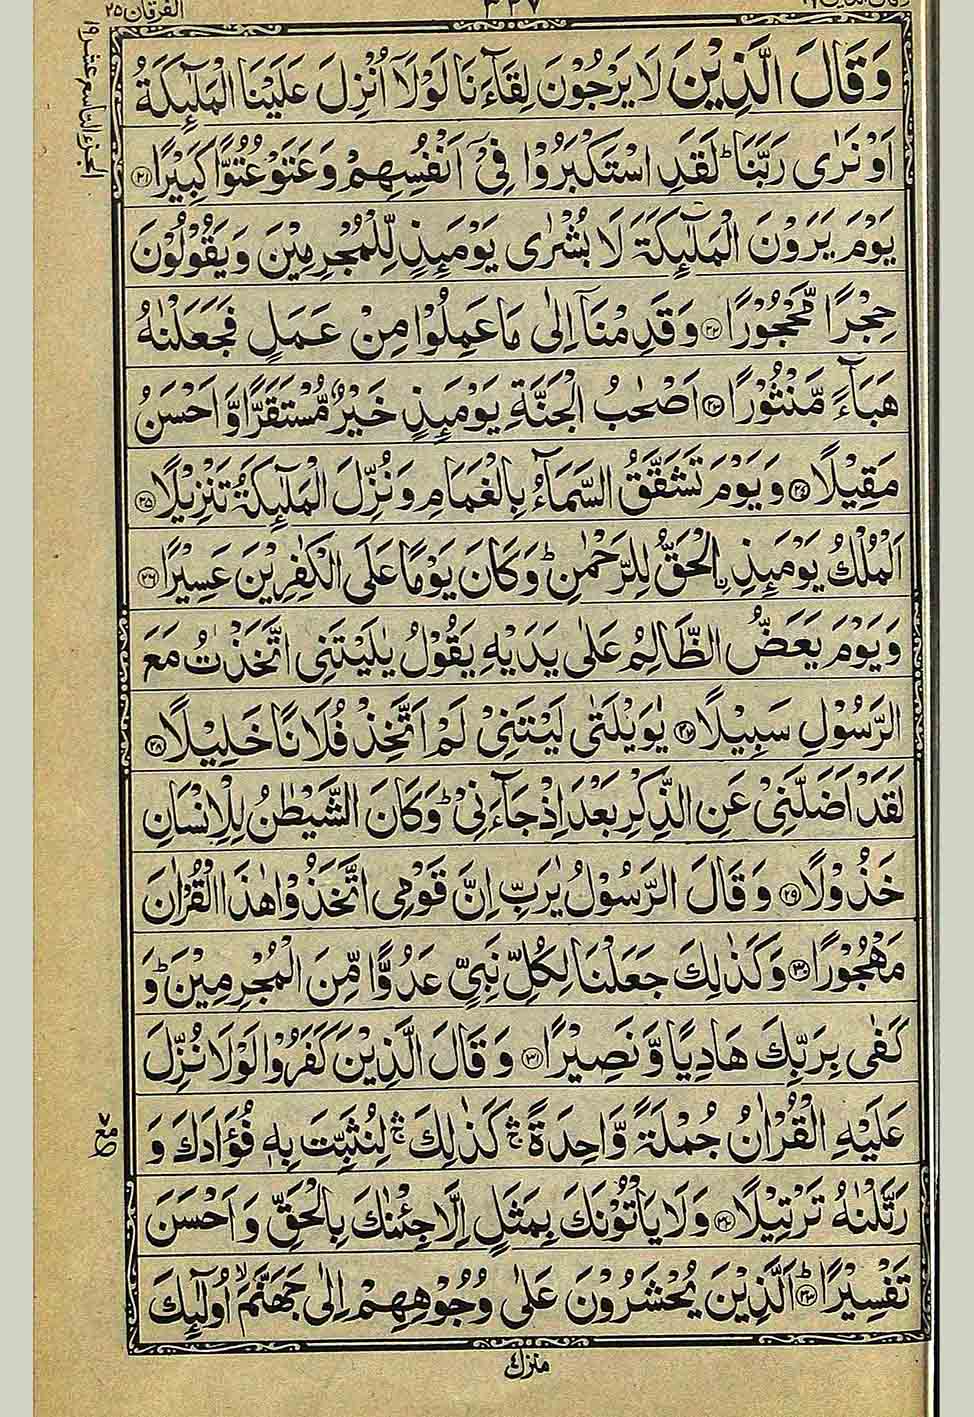 الفرقان ٢٥
٣٢٧
وَقَالَ الَّذِيْنَ لَا يَرْجُوْنَ لِقَآءَنَا لَوْلَاۤ اُنْزِلَ عَلَيْنَا الْمَلٰٓئِكَةُ
اَوْ نَرٰى رَبَّنَا ؕ لَقَدِ اسْتَكْبَرُوْا فِيْۤ اَنْفُسِهِمْ وَعَتَوْ عُتُوًّا كَبِيْرًا ﴿۲۱﴾
يَوْمَ يَرَوْنَ الْمَلٰٓئِكَةَ لَا بُشْرٰى يَوْمَئِذٍ لِّلْمُجْرِمِيْنَ وَيَقُوْلُوْنَ
حِجْرًا مَّحْجُوْرًا ﴿۲۲﴾ وَقَدِمْنَاۤ اِلٰى مَا عَمِلُوْا مِنْ عَمَلٍ فَجَعَلْنٰهُ
هَبَآءً مَّنْثُوْرًا ﴿۲۳﴾ اَصْحٰبُ الْجَنَّةِ يَوْمَئِذٍ خَيْرٌ مُّسْتَقَرًّا وَّاَحْسَنُ
مَقِيْلًا ﴿۲۴﴾ وَيَوْمَ تَشَقَّقُ السَّمَآءُ بِالْغَمَامِ وَنُزِّلَ الْمَلٰٓئِكَةُ تَنْزِيْلًا ﴿۲۵﴾
اَلْمُلْكُ يَوْمَئِذِ ِۨالْحَقُّ لِلرَّحْمٰنِ ؕ وَكَانَ يَوْمًا عَلَى الْكٰفِرِيْنَ عَسِيْرًا ﴿۲۶﴾
وَيَوْمَ يَعَضُّ الظَّالِمُ عَلٰى يَدَيْهِ يَقُوْلُ يٰلَيْتَنِى اتَّخَذْتُ مَعَ
الرَّسُوْلِ سَبِيْلًا ﴿۲۷﴾ يٰوَيْلَتٰى لَيْتَنِيْ لَمْ اَتَّخِذْ فُلَانًا خَلِيْلًا ﴿۲۸﴾
لَقَدْ اَضَلَّنِيْ عَنِ الذِّكْرِ بَعْدَ اِذْ جَآءَنِيْ ؕ وَكَانَ الشَّيْطٰنُ لِلْاِنْسَانِ
خَذُوْلًا ﴿۲۹﴾ وَقَالَ الرَّسُوْلُ يٰرَبِّ اِنَّ قَوْمِى اتَّخَذُوْا هٰذَا الْقُرْاٰنَ
مَهْجُوْرًا ﴿۳۰﴾ وَكَذٰلِكَ جَعَلْنَا لِكُلِّ نَبِيٍّ عَدُوًّا مِّنَ الْمُجْرِمِيْنَ ؕ وَ
كَفٰى بِرَبِّكَ هَادِيًا وَّنَصِيْرًا ﴿۳۱﴾ وَقَالَ الَّذِيْنَ كَفَرُوْا لَوْلَا نُزِّلَ
عَلَيْهِ الْقُرْاٰنُ جُمْلَةً وَّاحِدَةً ۛۚ كَذٰلِكَ ۛۚ لِنُثَبِّتَ بِهٖ فُؤَادَكَ وَ
رَتَّلْنٰهُ تَرْتِيْلًا ﴿۳۲﴾ وَلَا يَاْتُوْنَكَ بِمَثَلٍ اِلَّا جِئْنٰكَ بِالْحَقِّ وَاَحْسَنَ
تَفْسِيْرًا ﴿۳۳﴾ ؕ اَلَّذِيْنَ يُحْشَرُوْنَ عَلٰى وُجُوْهِهِمْ اِلٰى جَهَنَّمَ ۙ اُولٰٓئِكَ
الجزء التاسع عشر ١٩
منزل ٤